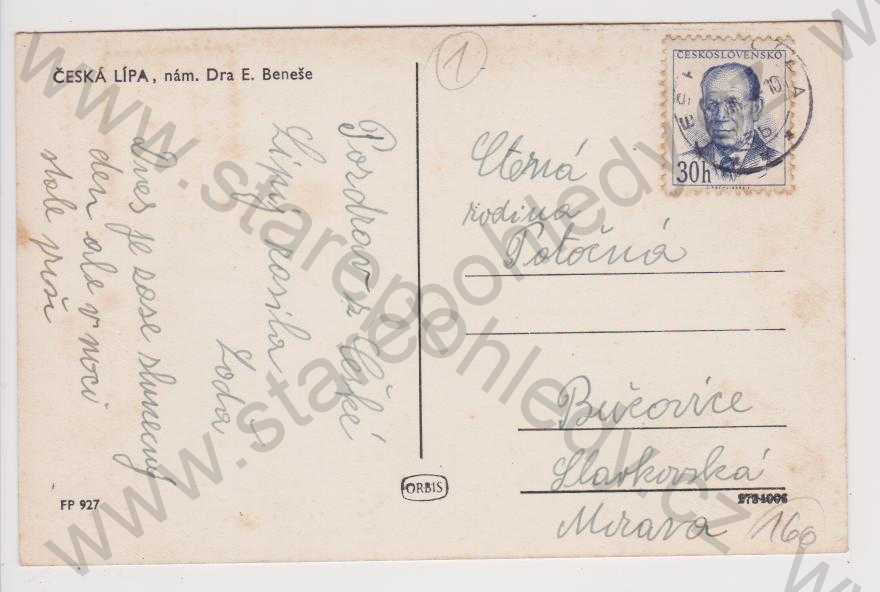 ČESKÁ LÍPA, nám. Dra E. Beneše
1
ČESKOSLOVENSKO
30h
Pozdrav z České
Lípy zasílá
Dnes je zase slunečný
den ale v noci
stále prší
Ctěná
rodina
Potočná
Bučovice
Slavkovská
Morava
FP 927
ORBIS
160
www.starepohledy.cz
www.starepohledy.cz